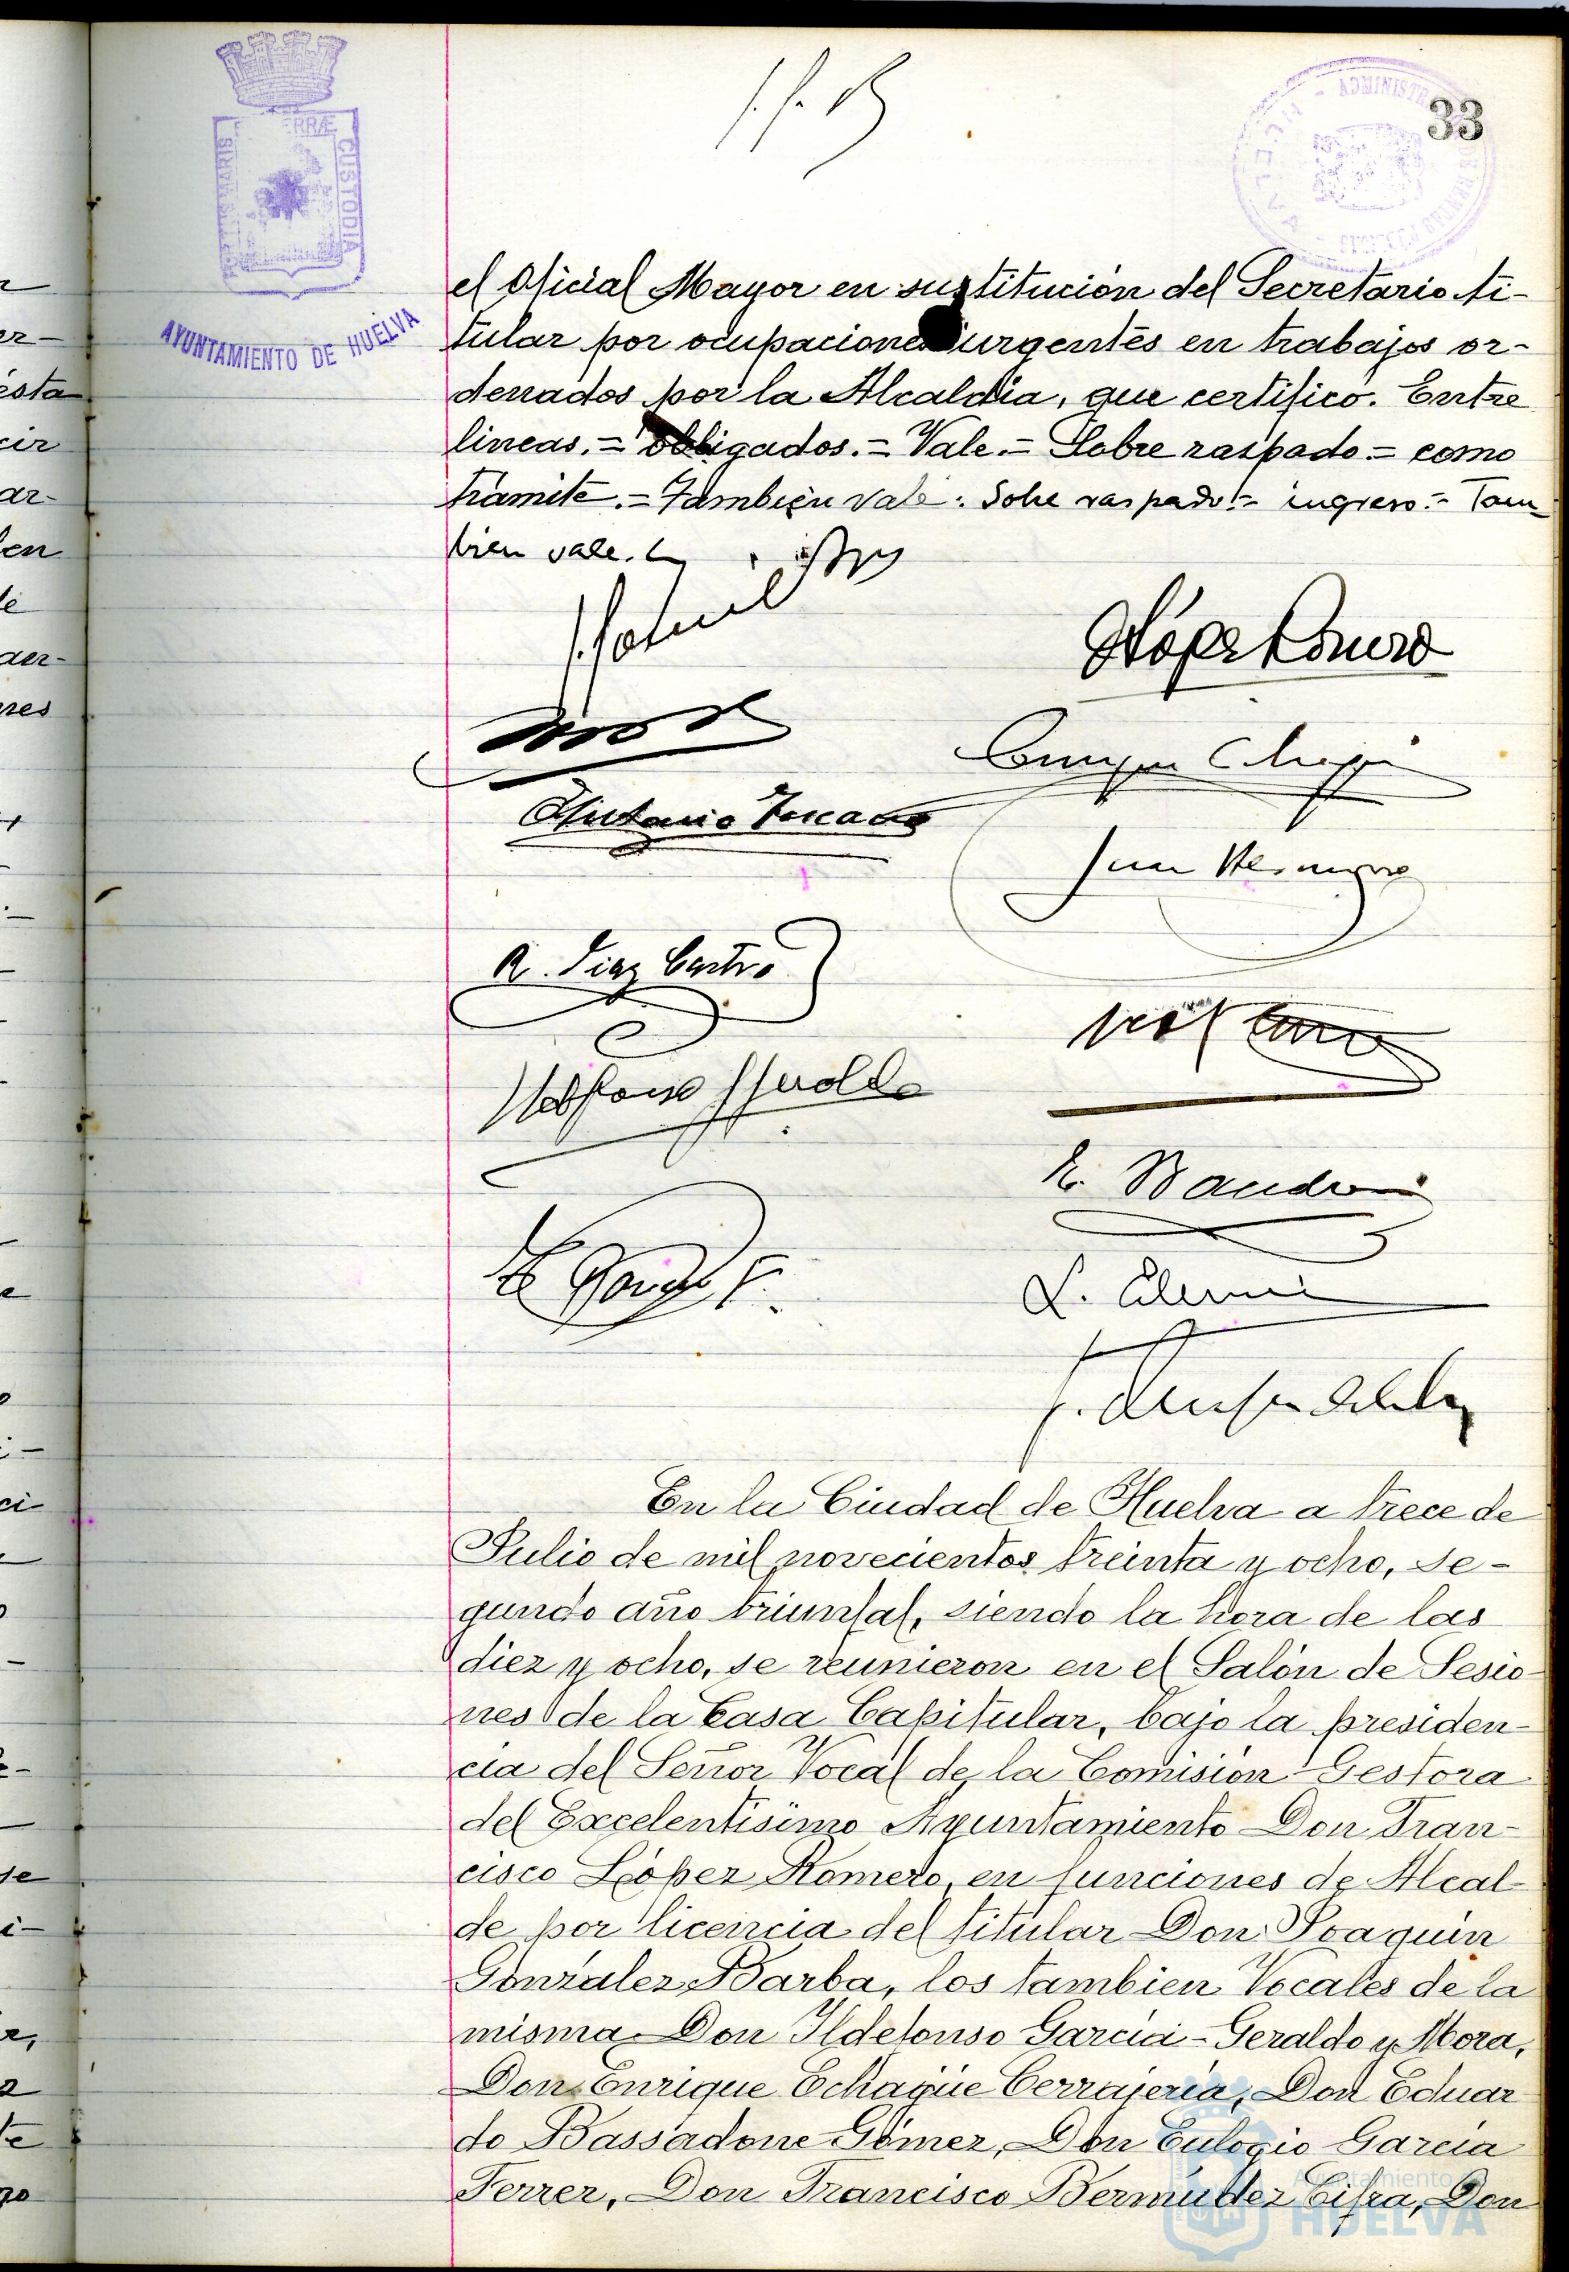 33
PORTUS MARIS ET TERRÆ CUSTODIA
AYUNTAMIENTO DE HUELVA
el Oficial Mayor en sustitución del Secretario ti-
tular por ocupaciones urgentes en trabajos or-
denados por la Alcaldia, que certifico. Entre
lineas.= obligados.= Vale.= Sobre raspado = como
tramite.= Tambien vale: Sobre raspado = ingreso.= Tam-
bien vale.
López Romero
Enrique Echagüe
Antonio Toscano
Juan
R. Diaz Castro
Ildefonso Geraldo
En la Ciudad de Huelva a trece de
Julio de mil novecientos treinta y ocho, se-
gundo año triunfal, siendo la hora de las
diez y ocho, se reunieron en el Salón de Sesio-
nes de la Casa Capitular, bajo la presiden-
cia del Señor Vocal de la Comisión Gestora
del Excelentisimo Ayuntamiento Don Fran-
cisco López Romero, en funciones de Alcal-
de por licencia del titular Don Joaquin
González Barba, los tambien Vocales de la
misma Don Ildefonso Garcia-Geraldo y Mora,
Don Enrique Echagüe Cerrajeria, Don Eduar
do Bassadone Gómez, Don Eulogio Garcia
Ferrer, Don Francisco Bermúdez Cifra, Don
Ayuntamiento de
HUELVA